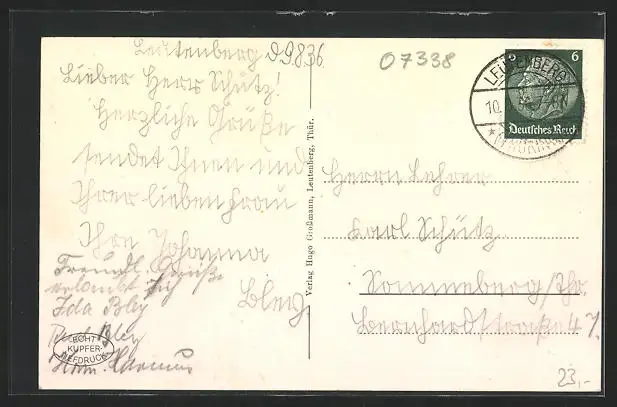 Leutenberg d 9.8.36
Lieber Herr Schütz!
Herzliche Grüße
sendet Ihnen und
Ihrer lieben Frau
Ihre Johanna
Bley
Freundl. Grüße
erlaubt sich
Ida Bley
Bley
ECHT
KUPFER-
TIEFDRUCK
Verlag Hugo Großmann, Leutenberg, Thür.
07338
LEUTENBERG
10.
6
Deutsches Reich
Herrn Lehrer
Karl Schütz
Sonneberg/Thr.
Bernhardstraße 47.
23,-